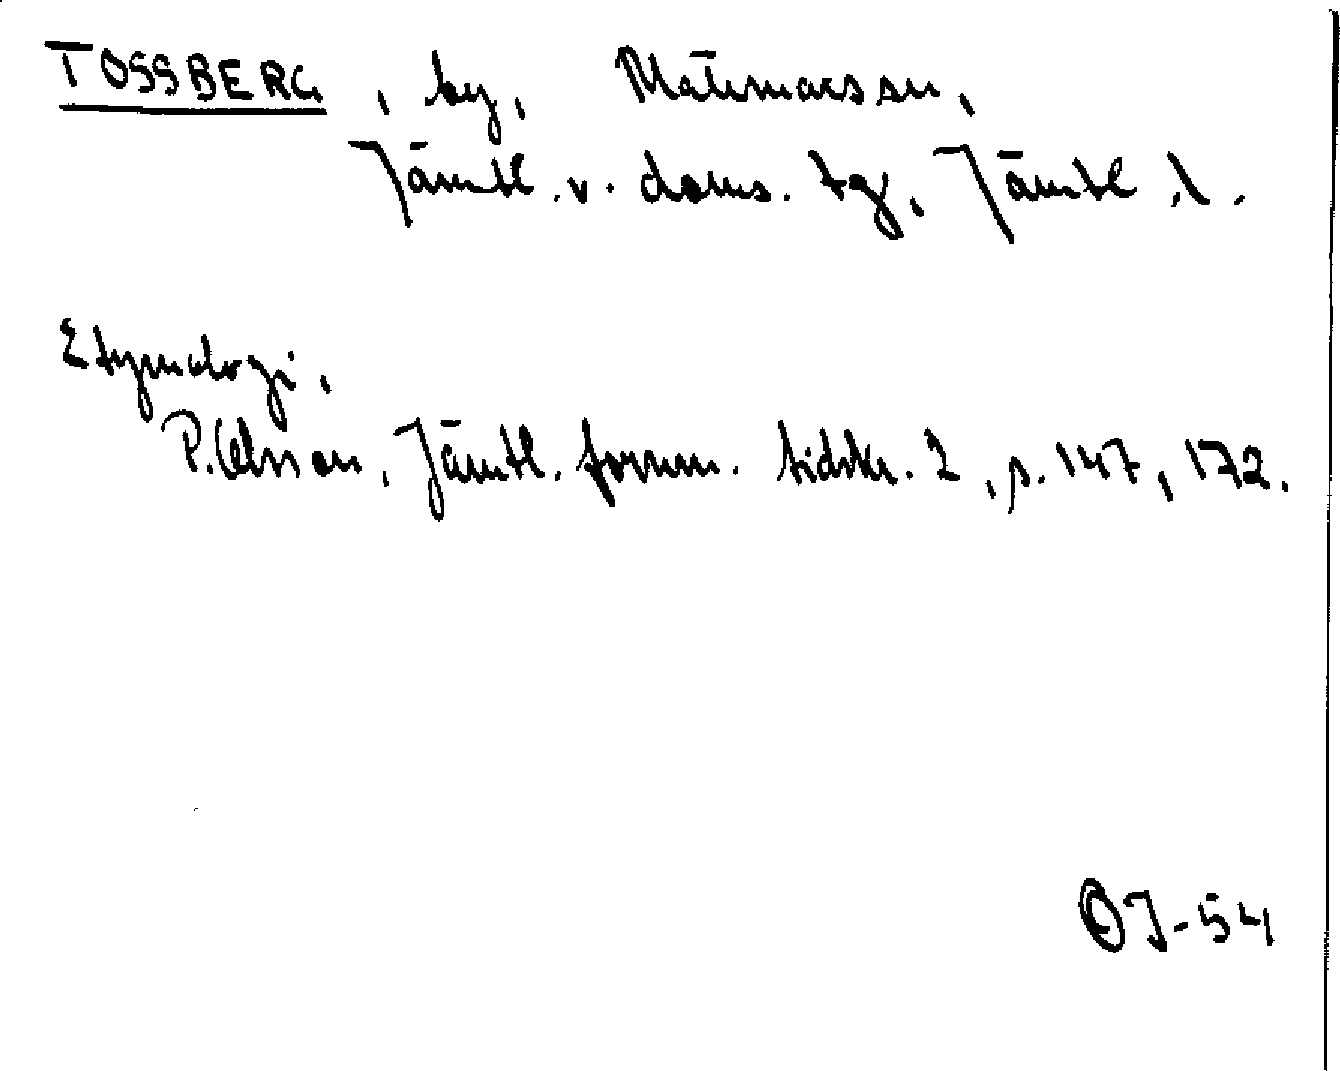 TOSSBERG, by, Mattmars sn,
Jämtl. v. doms. tg, Jämtl. l.
Etymologi,
P. Olsson, Jämtl. fornm. tidskr. 2, s. 147, 172.
OJ-54